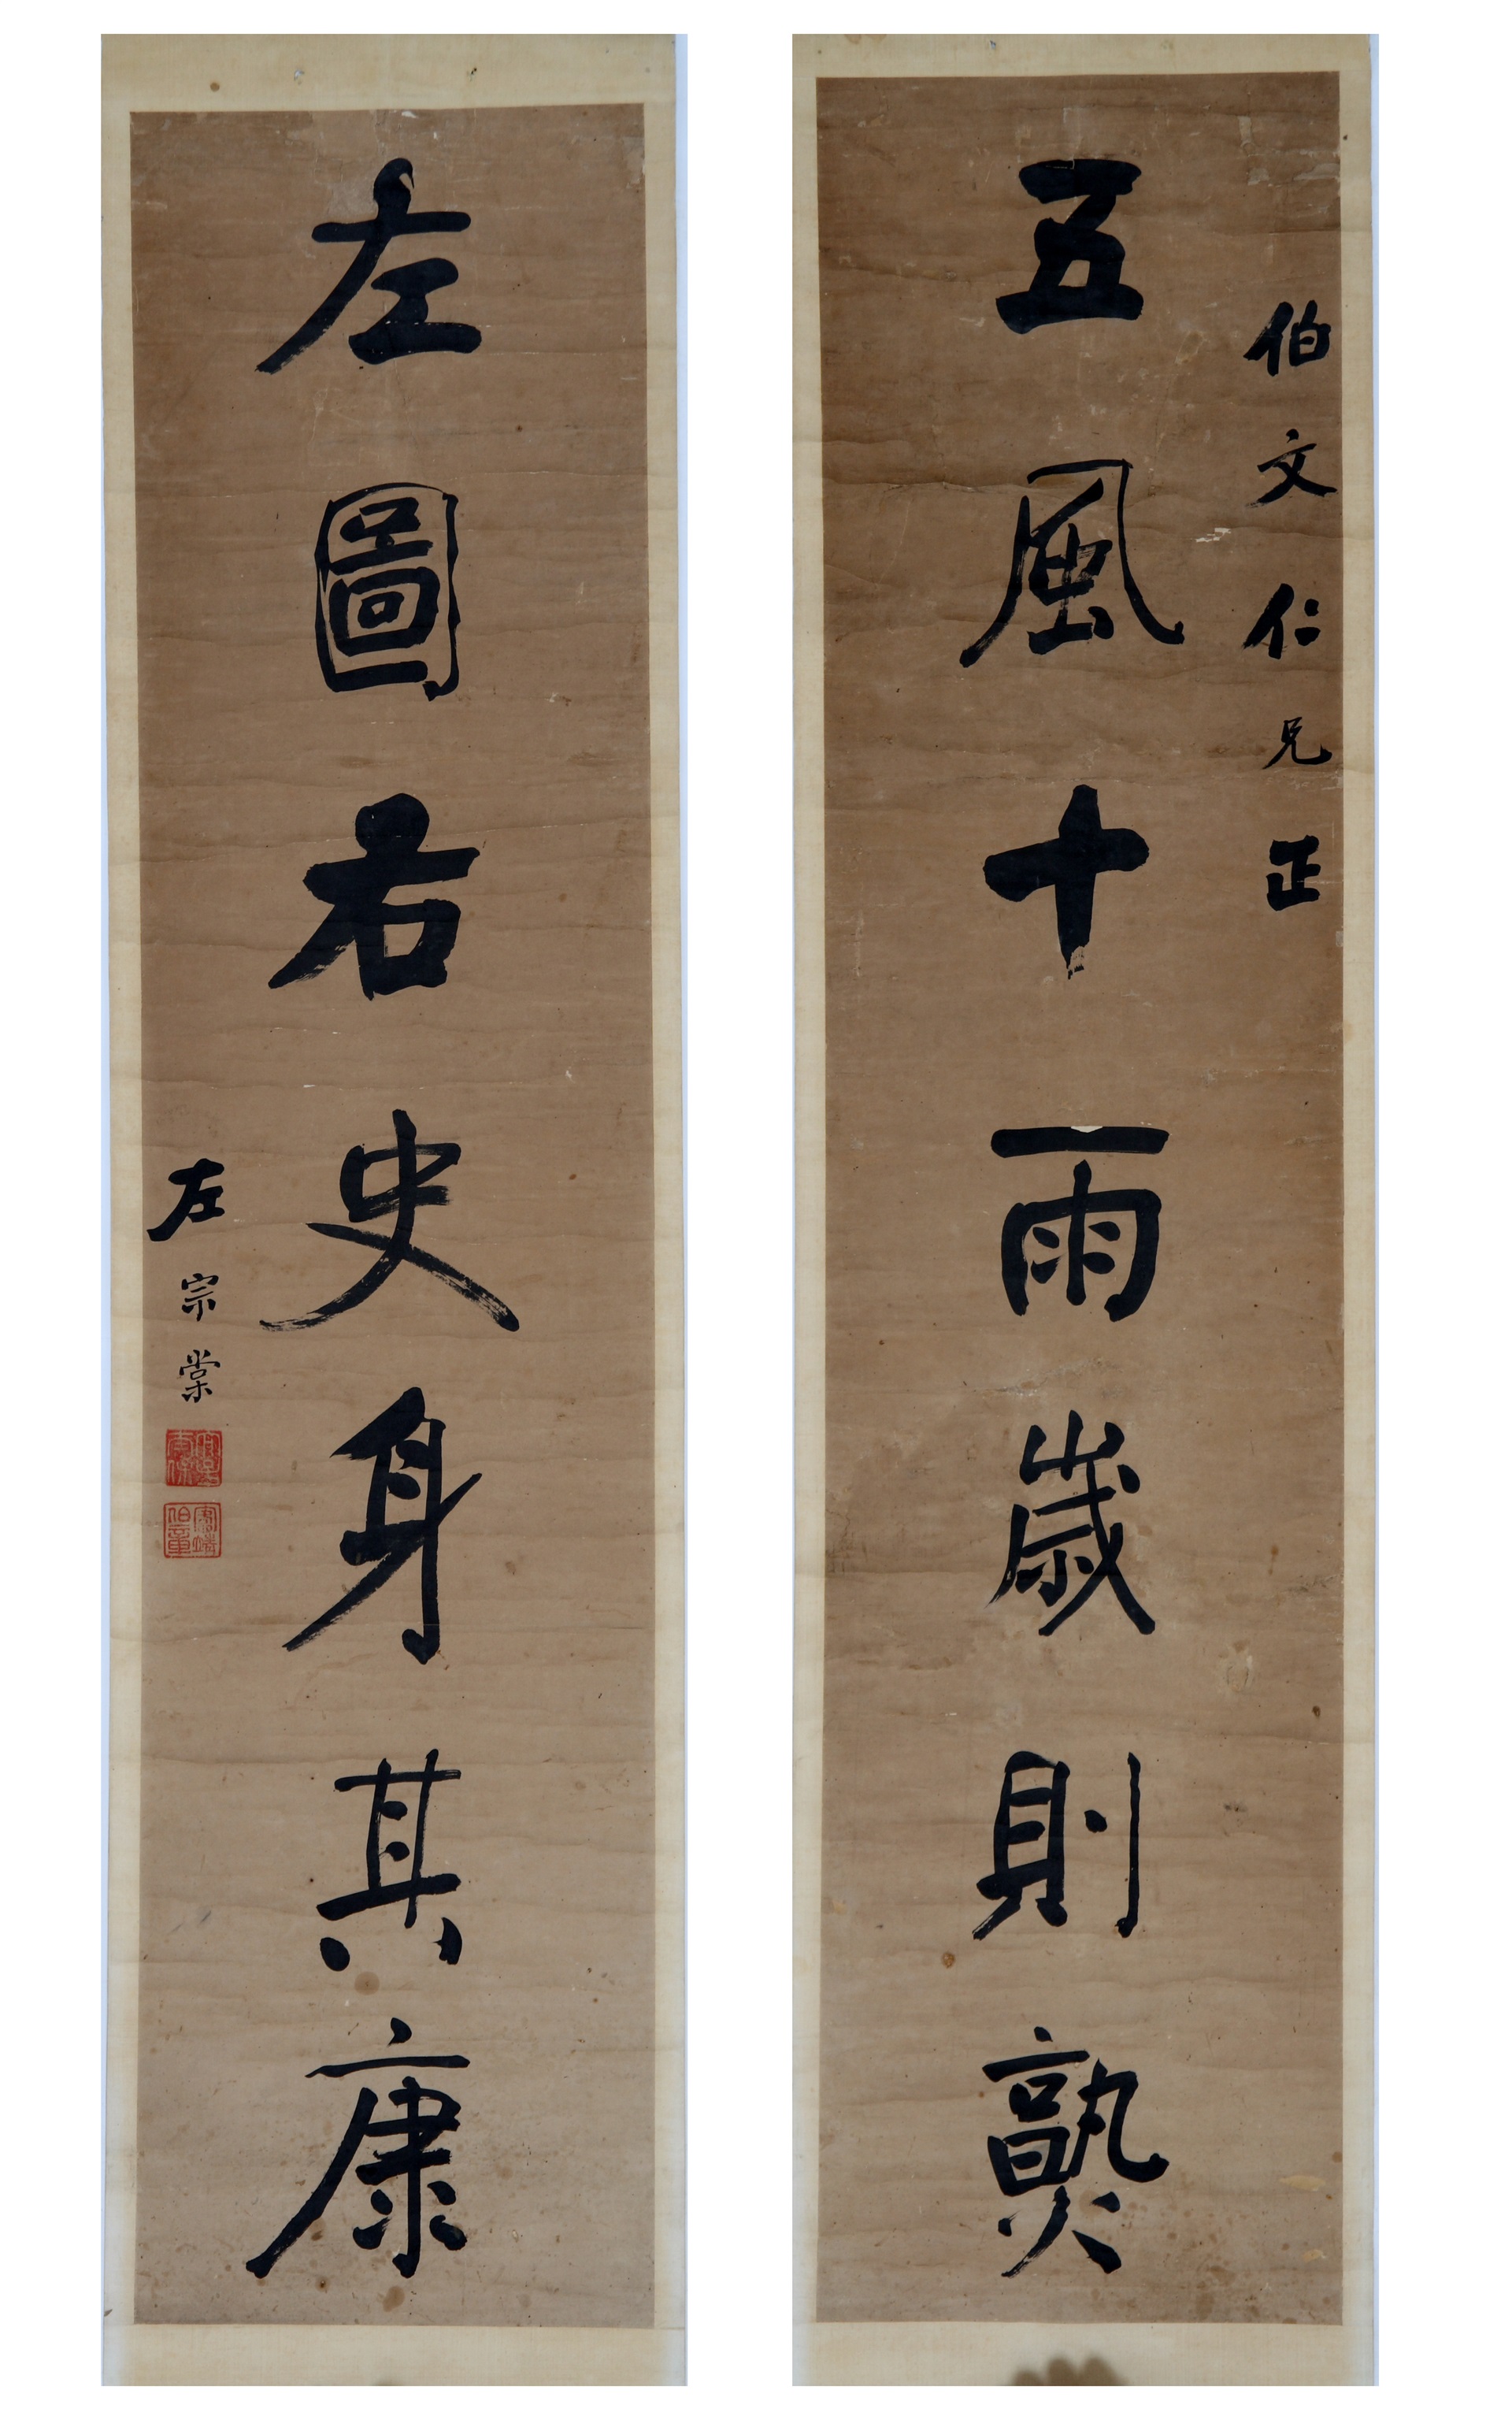 伯文仁兄正
五風十雨歲則熟
左圖右史身其康
左宗棠